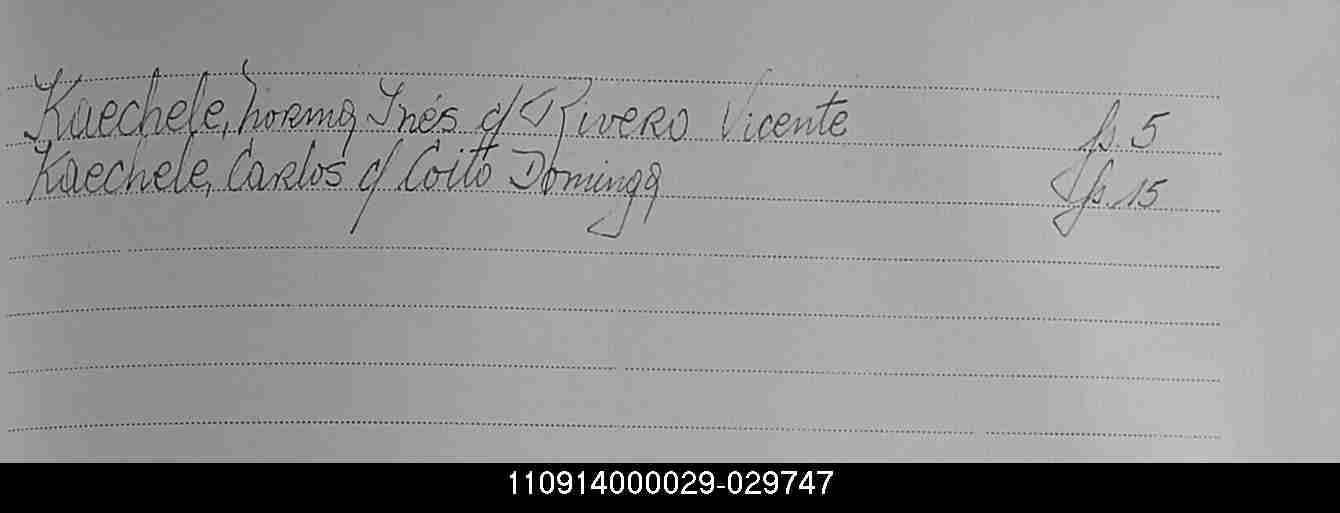 Kaechele, Norma Inés c/ Rivero Vicente fs. 5
Kaechele, Carlos c/ Coito Dominga fs. 15
110914000029-029747